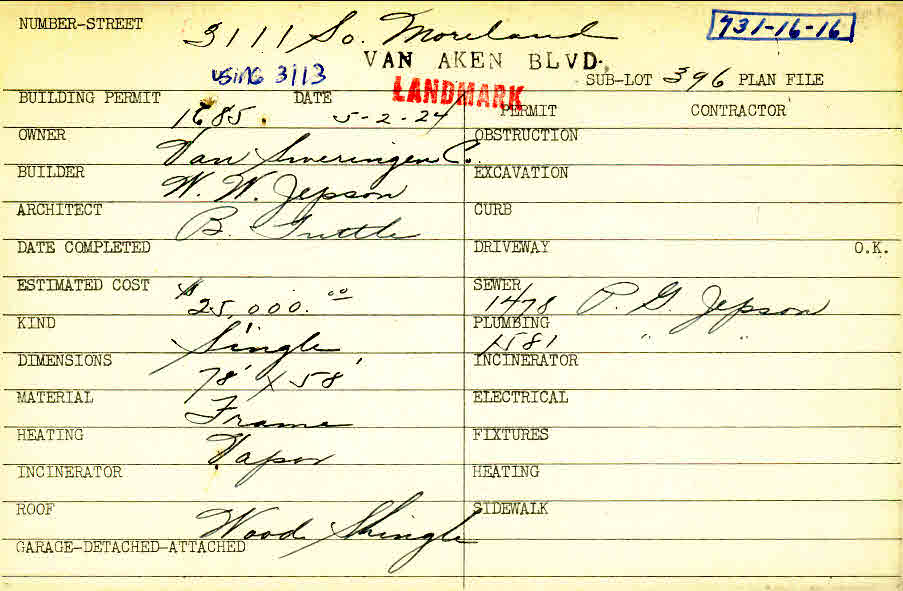 NUMBER-STREET 3111 So. Moreland 731-16-16
VAN AKEN BLVD.
USING 3113 LANDMARK SUB-LOT 396 PLAN FILE
BUILDING PERMIT 1685. DATE 5-2-24 PERMIT CONTRACTOR
OWNER Van Sweringen Co. OBSTRUCTION
BUILDER W. W. Jepson EXCAVATION
ARCHITECT B. Tuttle CURB
DATE COMPLETED DRIVEWAY O.K.
ESTIMATED COST $25,000.00 SEWER 1478 P. G. Jepson
KIND Single PLUMBING 1581 " "
DIMENSIONS 78' x 58' INCINERATOR
MATERIAL Frame ELECTRICAL
HEATING Vapor FIXTURES
INCINERATOR HEATING
ROOF Wood Shingle SIDEWALK
GARAGE-DETACHED-ATTACHED